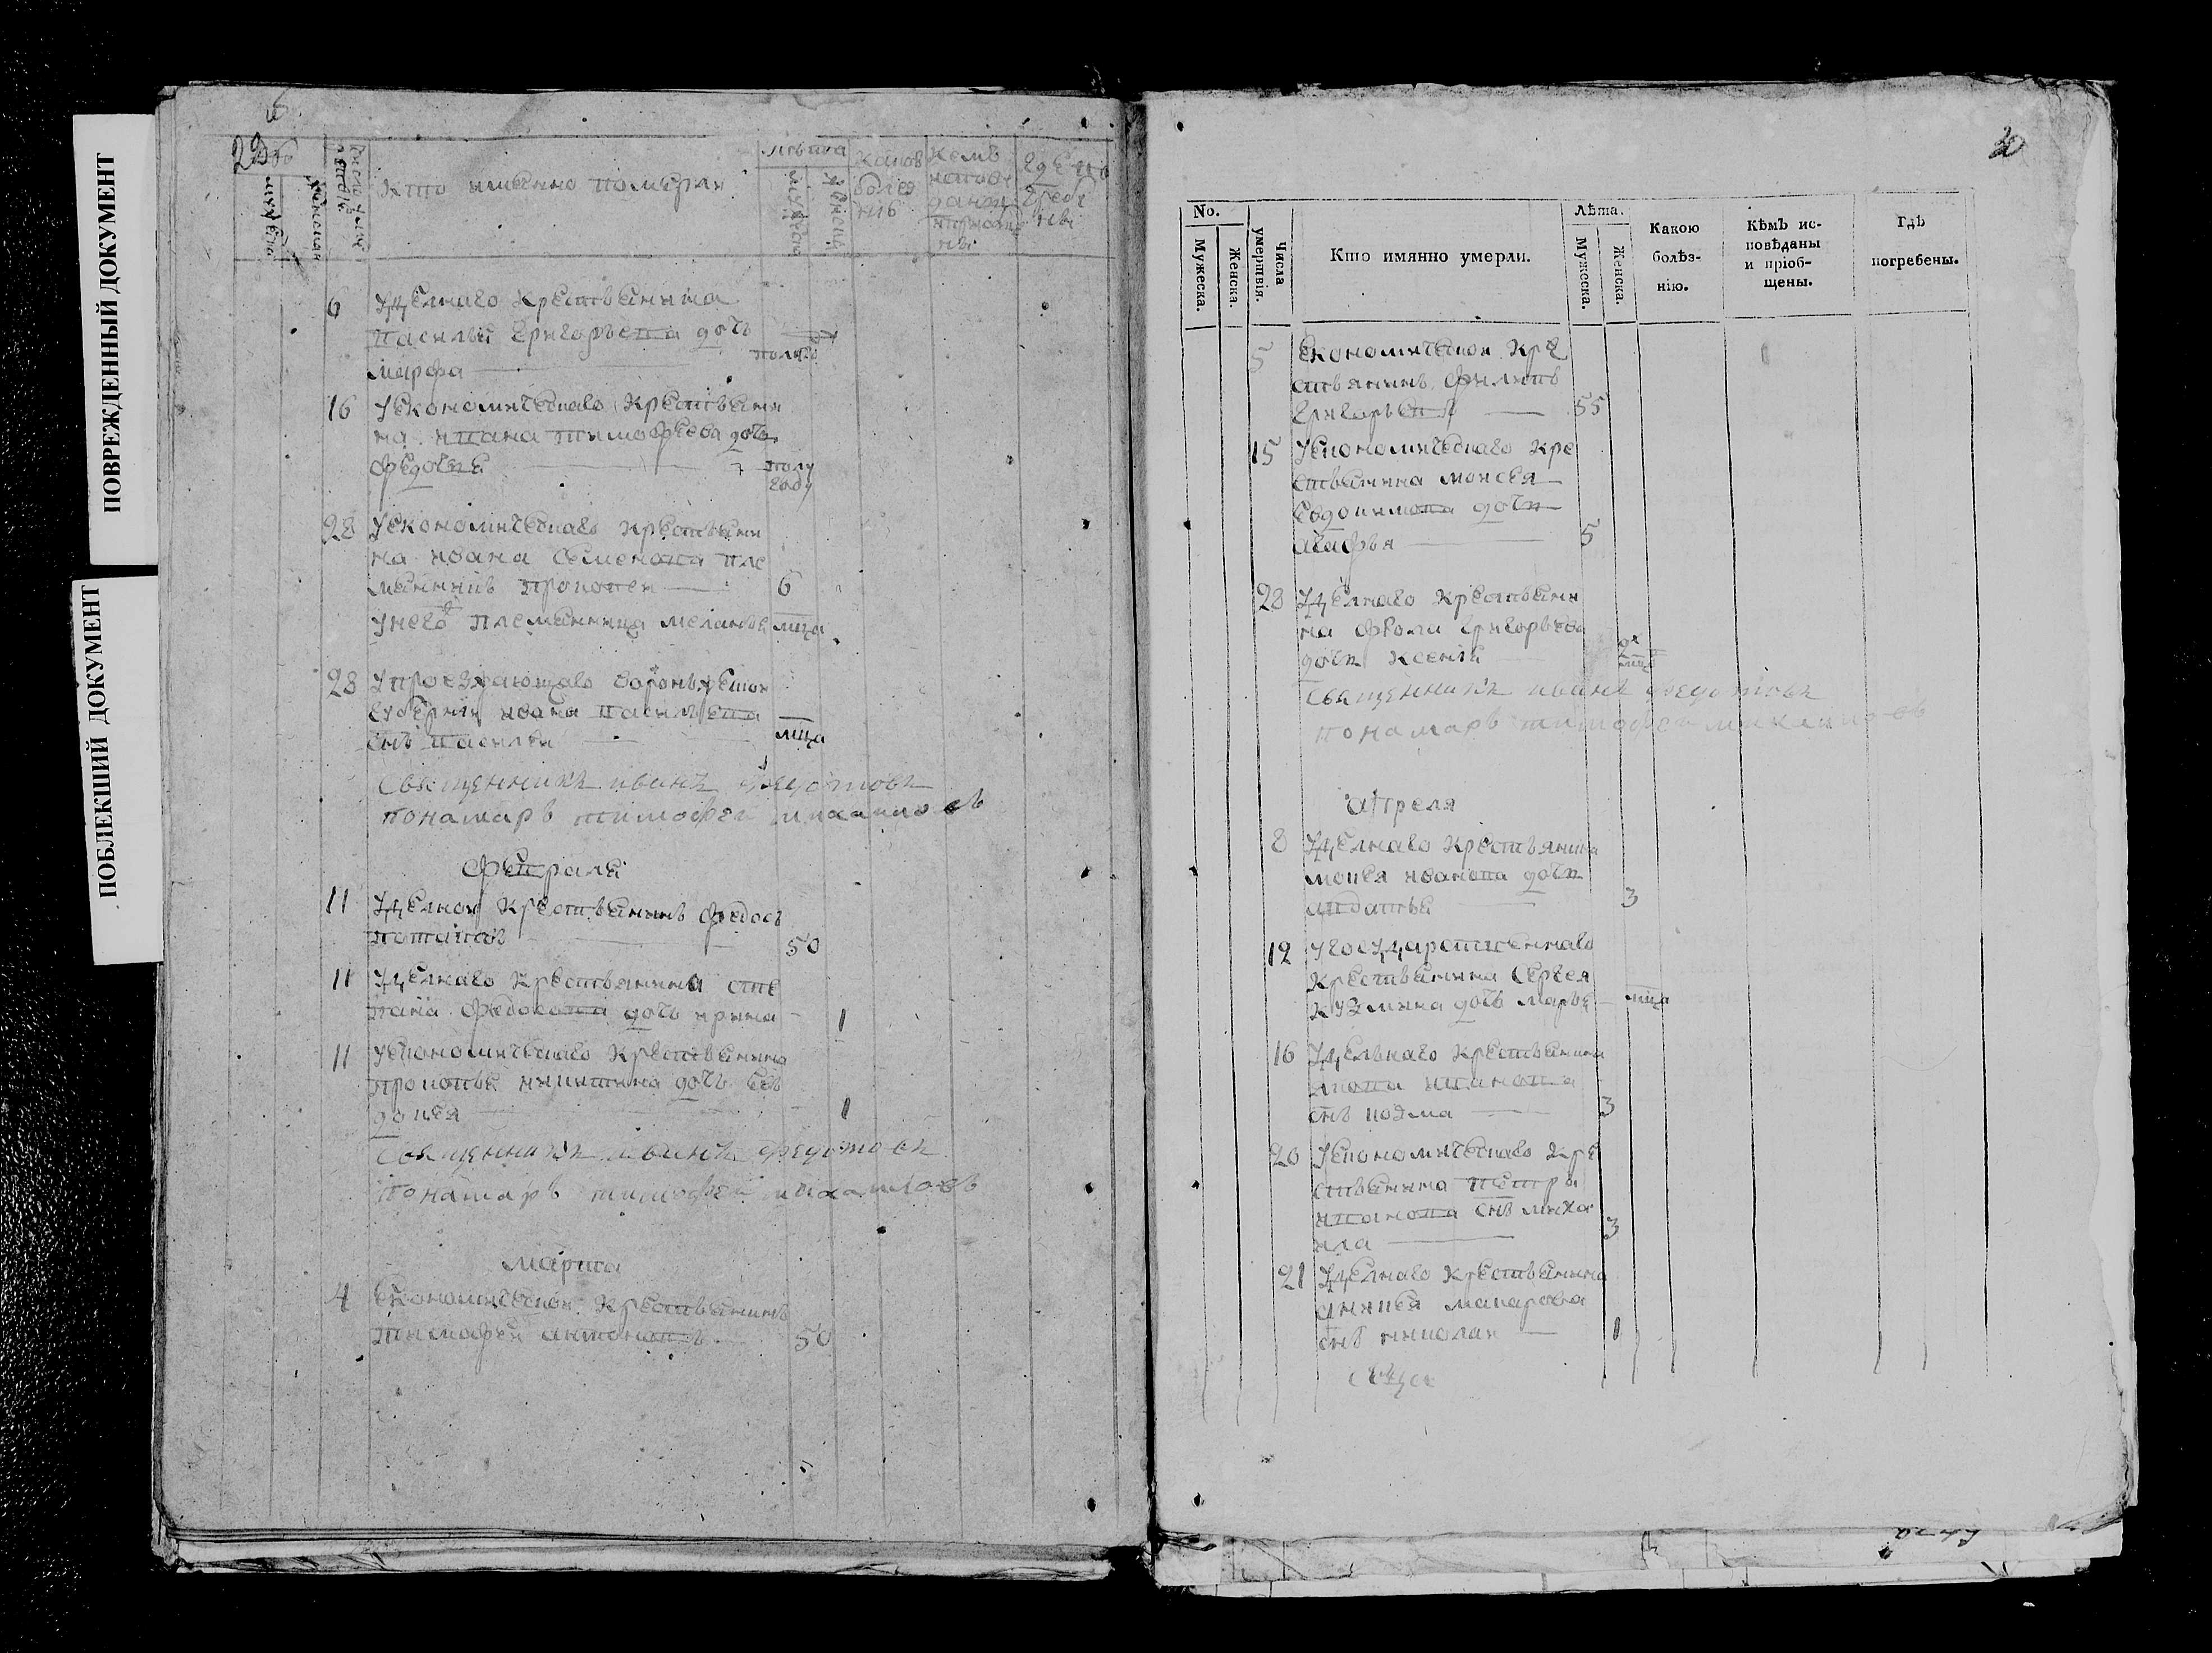 ПОВРЕЖДЕННЫЙ ДОКУМЕНТ
ПОБЛЕКШИЙ ДОКУМЕНТ
Кто имянно померли
лѣта
6 Удѣлнаго крестьянина
василья григорьева дочь
марфа
полуго
16 Уекономическаго крестьяни
на ивана тимофеева дочь
федосья
полу
году
28 Уекономическаго крестьяни
на ивана семенова пле
мянникъ прокопеи 6
унего племянница меланья мца
28 Упроезжающаго воронежской
губернии ивана васильева
снъ василеи мца
Священникъ иванъ федотовъ
понамарь тимофеи михаиловъ
февраля
11 Удѣлной крестьянинъ федосъ
потаповъ 50
11 Удѣлнаго крестьянина сте
пана федосова дочь ирина 1
11 Уекономическаго крестьянина
прокопья никитина дочь ев
докея 1
Священникъ иванъ федотовъ
понамарь тимофеи михаиловъ
марта
4 Економической крестьянинъ
тимофеи антоновъ 50
30
No.
Мужеска.
Женска.
Числа
умертвія.
Кто имянно умерли.
Лѣта.
Мужеска.
Женска.
Какою
болѣз-
нію.
Кѣмъ ис-
повѣданы
и пріоб-
щены.
Гдѣ
погребены.
5 Економической кре
стьянинъ филипъ
григорьевъ 55
15 Уекономическаго кре
стьянина моисея
евдокимова дочь
агафья 5
28 Удѣлнаго крестьяни
на фрола григорьева
дочь ксения
Священникъ иванъ федотовъ
понамарь тимофеи михаиловъ
апреля
8 Удѣлнаго крестьянина
мокея иванова дочь
авдотья 3
12 Угосударственнаго
крестьянина сергея
кузмина дочь марья мца
16 Удѣльнаго крестьянина
якова иванова
снъ козма 3
20 Уекономическаго кре
стьянина петра
иванова снъ миха
ила 3
21 Удѣлнаго крестьянина
аникея макарова
снъ николаи 1